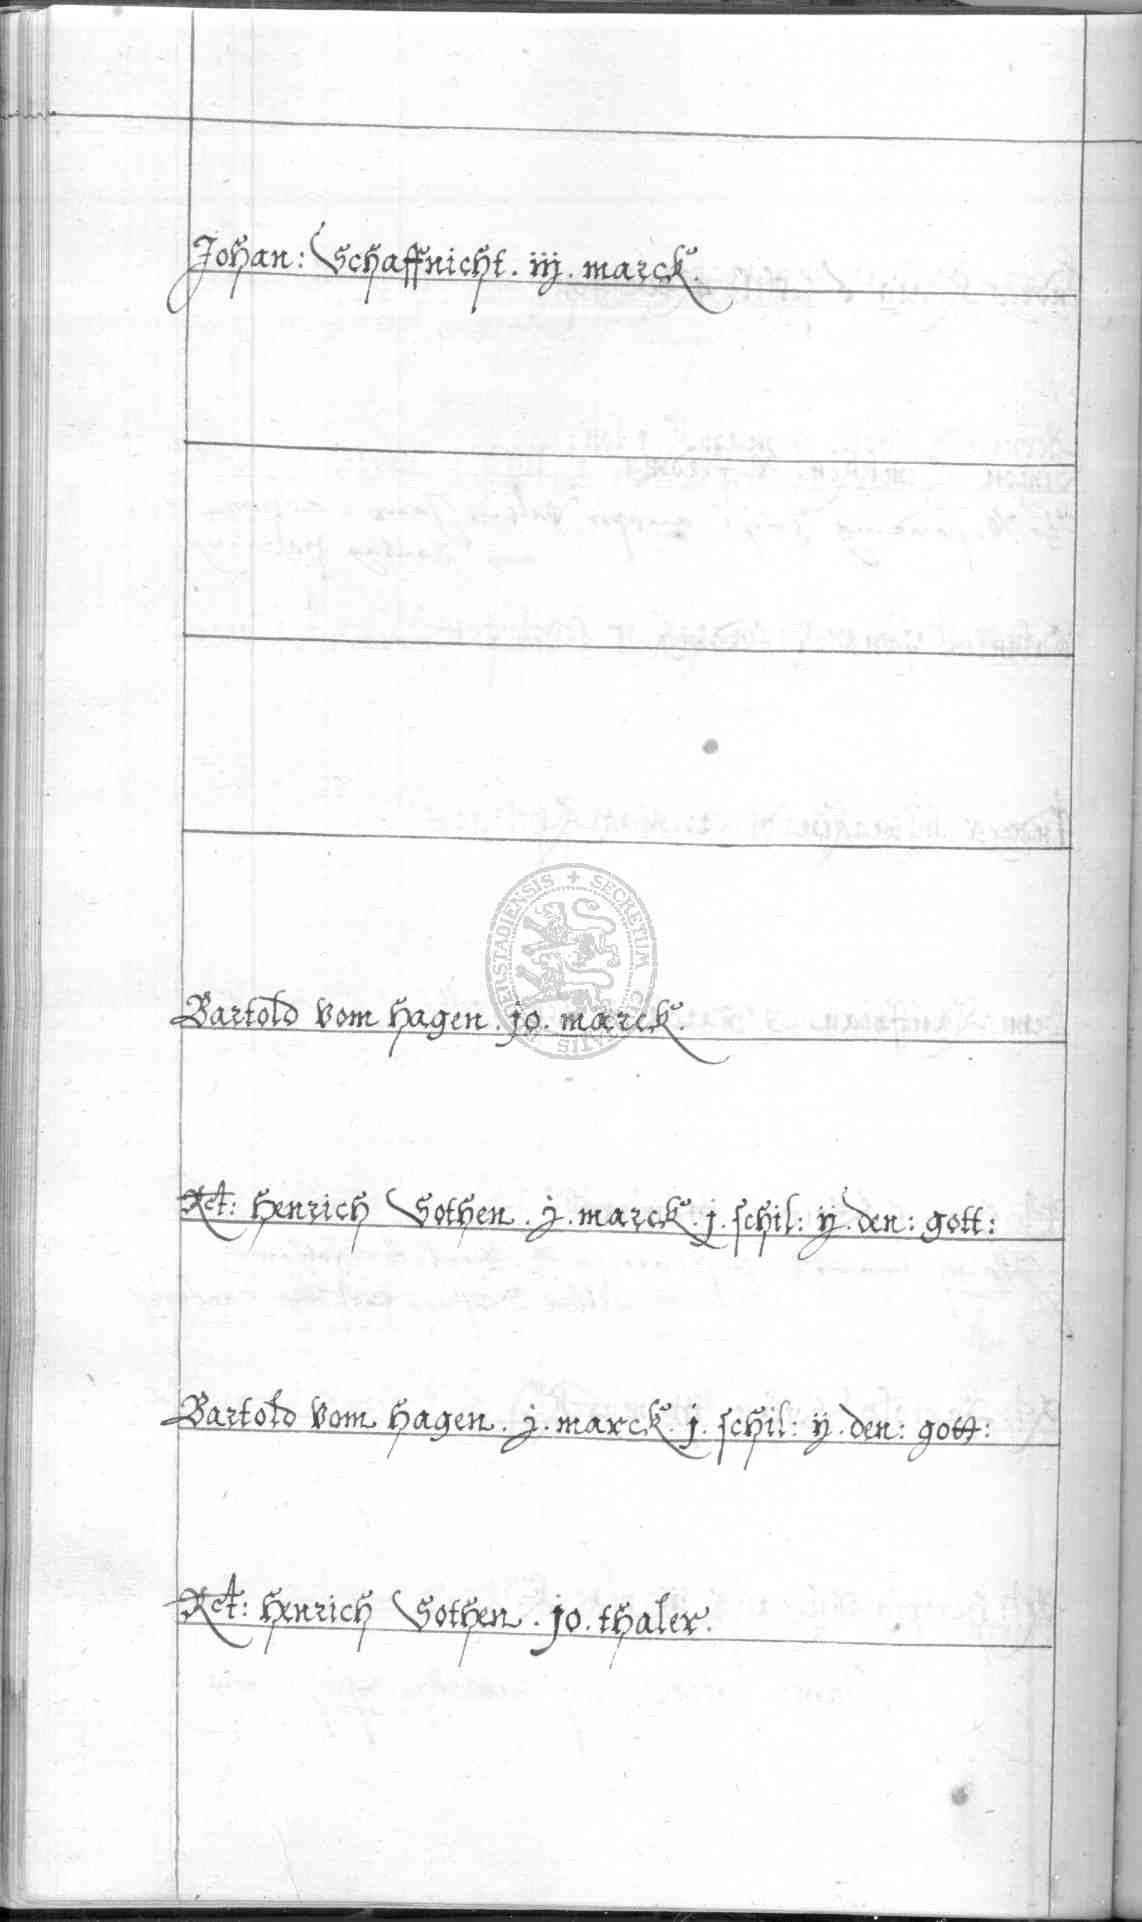 Johan: Schaffnicht. iij. marck.
Bartold vom Hagen. jo. marck.
Rct: Henrich Sothen. j. marck. j. schil: ij. den: gott:
Bartold vom Hagen. j. marck. j. schil: ij. den: gott:
Rct: Henrich Sothen. jo. thaler.
SECRETUM